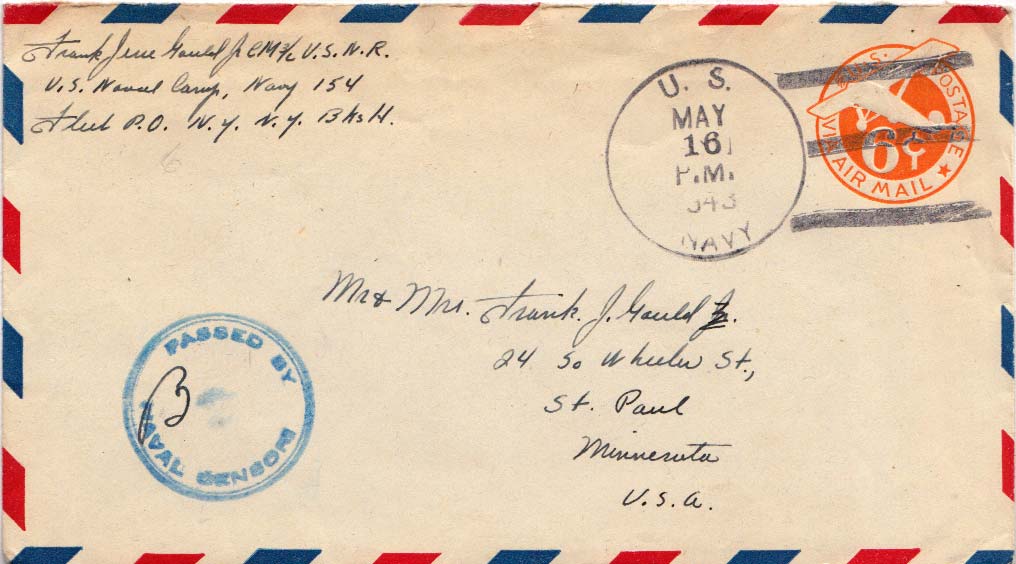 Frank Jene Gould Jr CM2/c U.S.N.R.
U.S. Naval Camp, Navy 154
Fleet P.O. N.Y. N.Y. Bks H.
U. S.
MAY
16
P.M.
943
NAVY
U.S. POSTAGE
6¢
VIA AIR MAIL
Mr & Mrs. Frank. J. Gould Jr.
24 So Wheeler St.,
St. Paul
Minnesota
U.S.A.
PASSED BY
NAVAL CENSOR